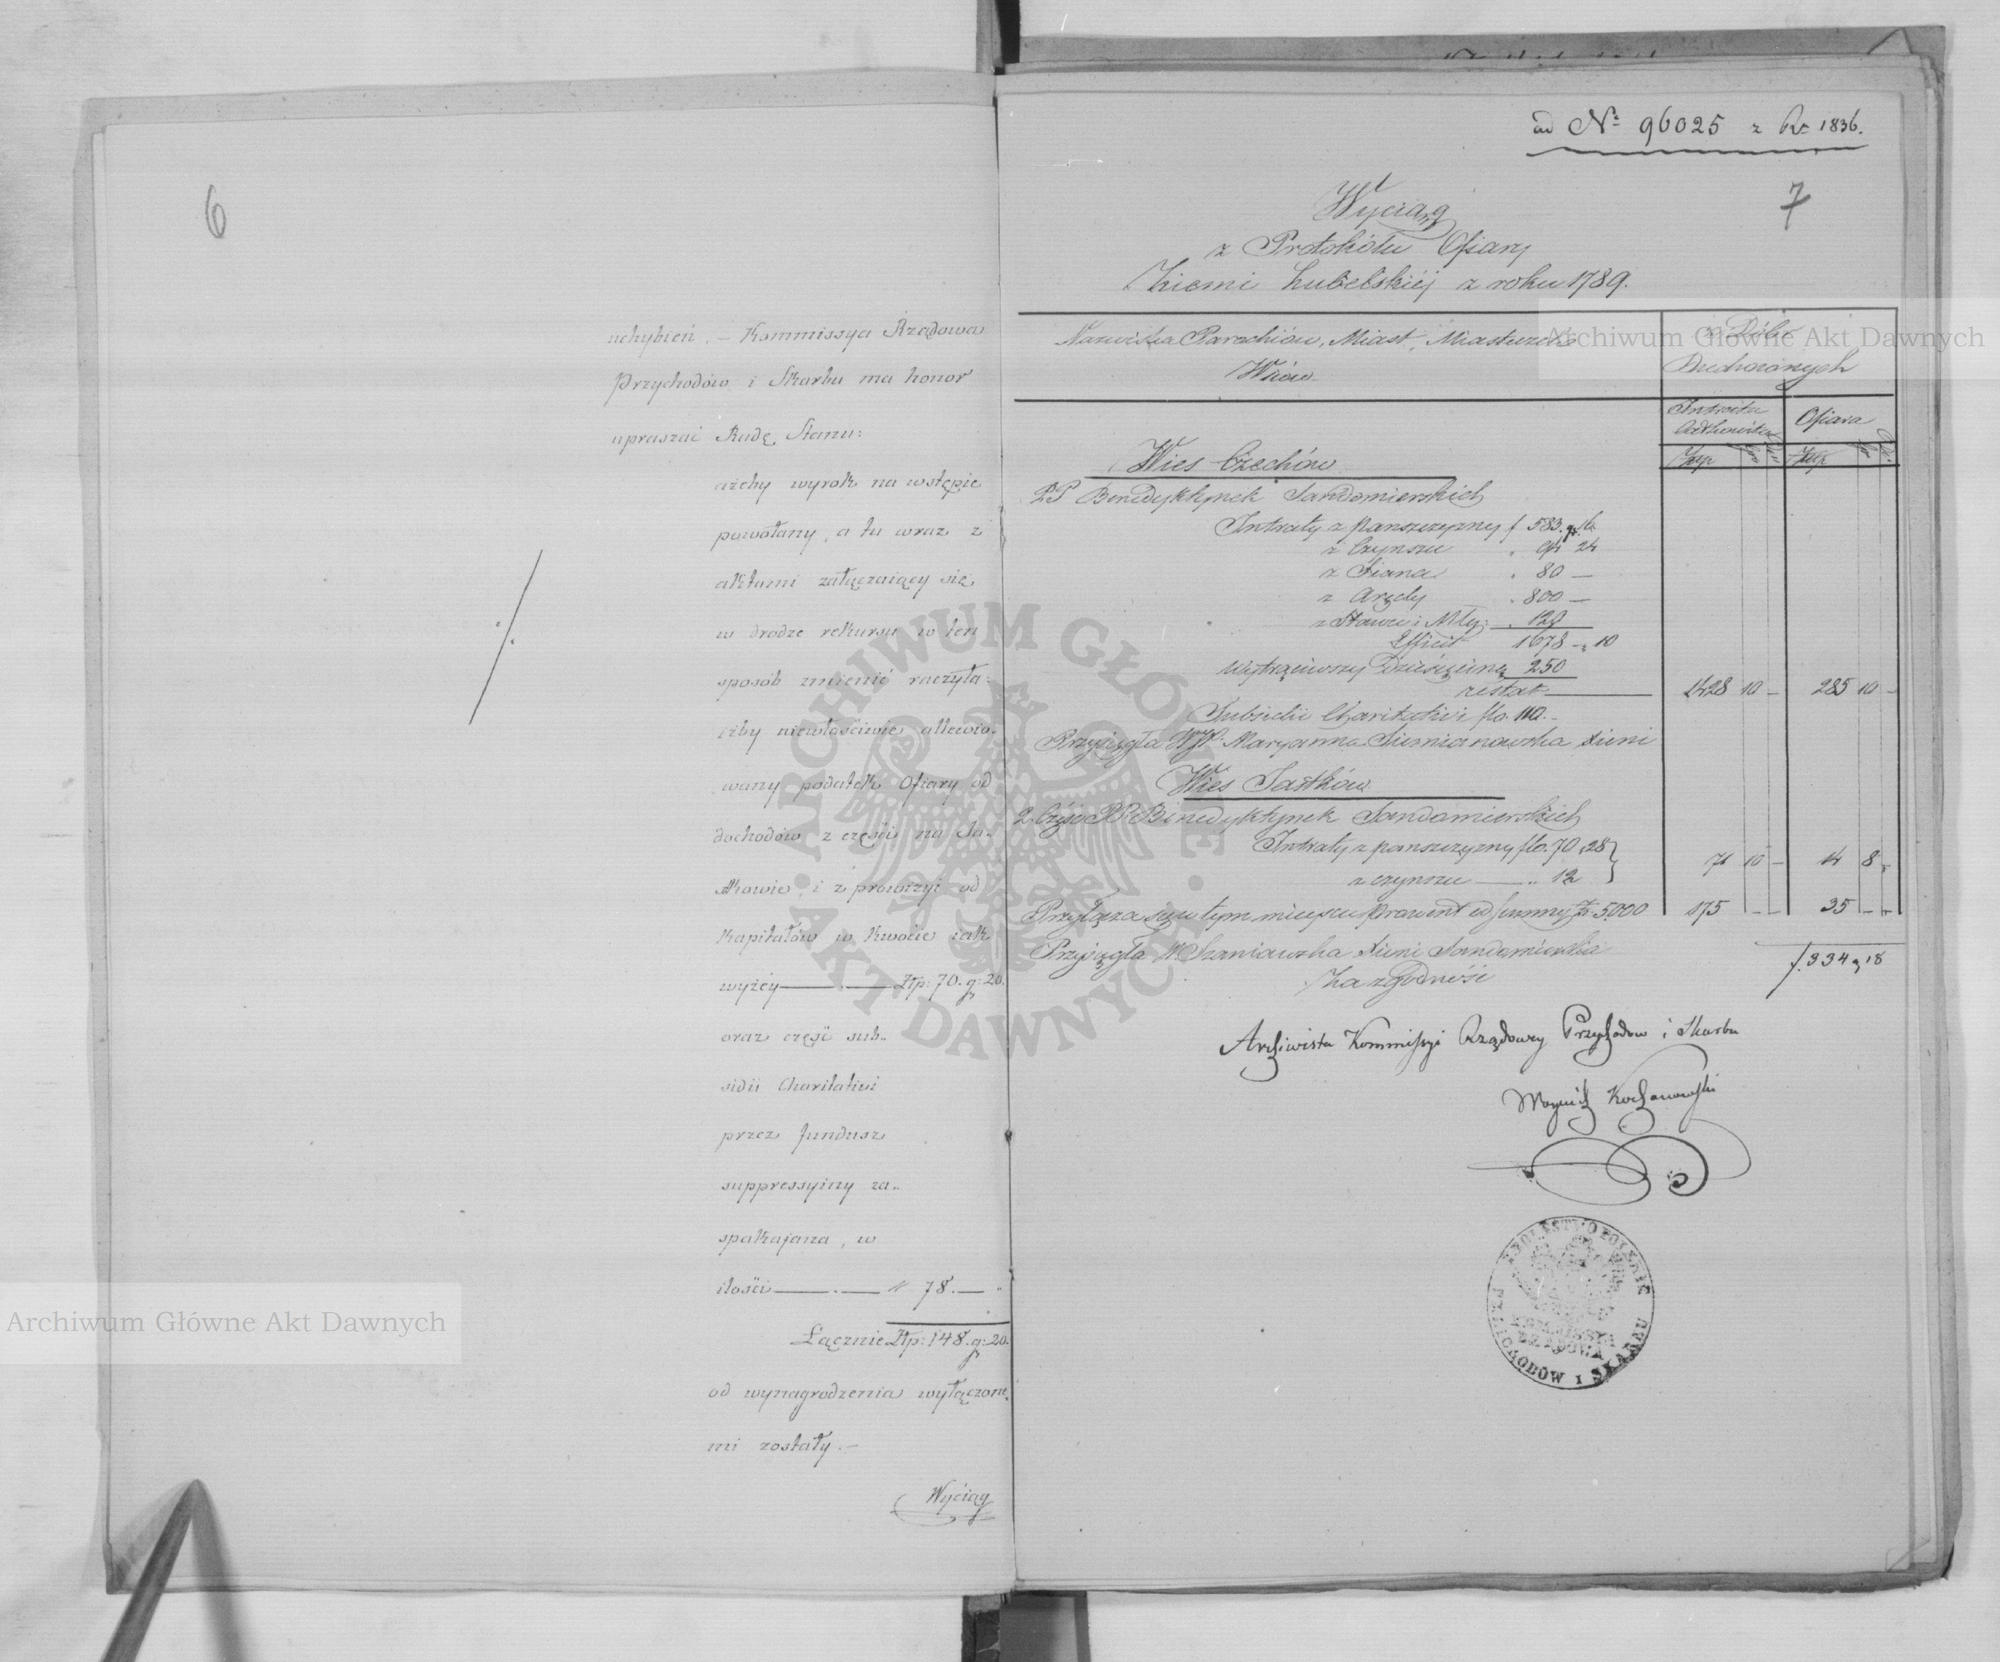 6
uchybień. – Kommissya Rządowa
Przychodów i Skarbu ma honor
upraszać Radę Stanu:
ażeby wyrok na wstępie
powołany, a tu wraz z
aktami załączaiący się
w drodze rekursu w ten
sposób zmienić raczyła:
iżby niewłaściwie allewio-
wany podatek Ofiary od
dochodów z części na Ja-
stkowie, i z prowizyi od
Kapitałów w kwocie iak
wyżey Złp: 70. g: 20.
oraz części sub-
sidii Charitativi
przez fundusz
suppressyiny za-
spakajana, w
ilości " 78. –
Łącznie Złp: 148. g: 20.
od wynagrodzenia wyłączone-
mi zostały. –
Wyciąg
ad Nº 96025 z R. 1836.
7
Wyciąg
z Protokółu Ofiary
Ziemi Lubelskiéj z roku 1789.
Nazwiska Parochiów, Miast, Miasteczek
Wsiów
z Dóbr
Duchownych
Intrata
całkowita
Ofiara
Złp gr Złp
Wieś Czechów
PP Benedyktynek Sandomierskich
Intraty z pańszczyzny f 583. gr. 16
z Czynszu " 94 24
z Siana " 80 —
z Arędy " 800 —
z Stawu i Mły: " 120
Efficit 1678 " 10
Wytrąciwszy Dziesięcinę 250
restat 1428 10 – 285 10 –
Subsidii Charitativi flo. 110. –
Przysięgła Maryanna Siemianowska Xieni
Wieś Jastków
2. Część PP Benedyktynek Sandomierskich
Intraty z pańszczyzny flo. 70 " 28
z czynszu — " 12
71 10 – 14 8 –
Przyłącza się w tym mieyscu prowent od summy Zł. 5.000 175 – – 35 – –
Przysięgła W. Szaniawska Xieni Sandomirska
f. 334 " 18
Za zgodność
Archiwista Kommissyi Rządowey Przychodow i Skarbu
Kochanowski
KRÓLESTWO POLSKIE
KOMMISSYA
RZĄDOWA
PRZYCHODÓW I SKARBU
Archiwum Główne Akt Dawnych
Archiwum Główne Akt Dawnych
ARCHIWUM GŁÓWNE
AKT DAWNYCH